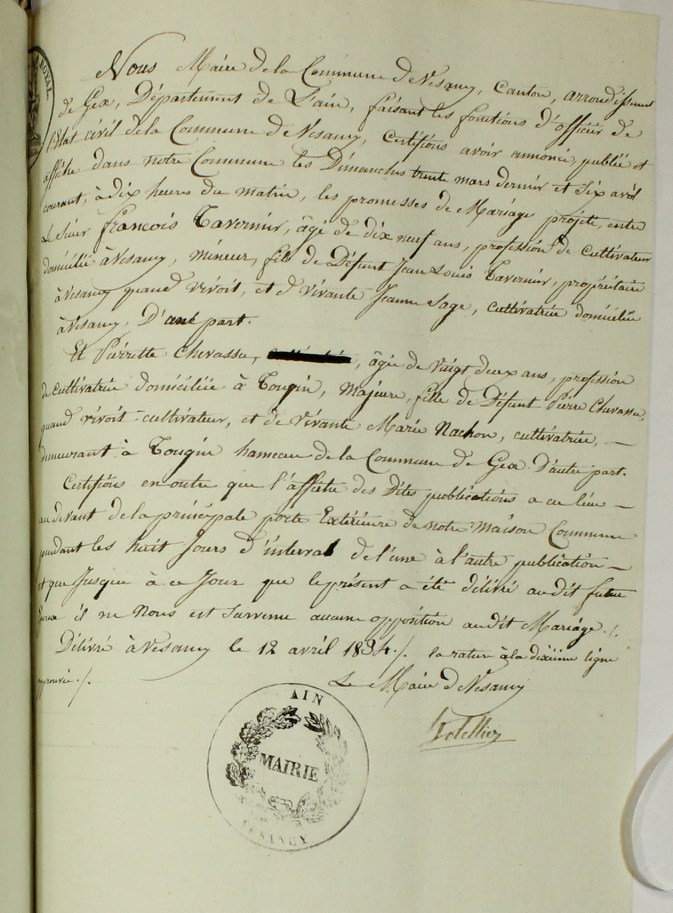 ROYAL
Nous Maire de la Commune de Vesancy, Canton, arrondissement
de Gex, Département de L'ain, faisant les fonctions d'officier de
l'Etat civil de la Commune de Vesancy, certifions avoir annoncé, publié et
affiché dans notre Commune les Dimanches trente mars dernier et Six avril
courant, à dix heures du matin, les promesses de Mariage projeté, entre
Le Sieur françois Tavernier, âgé de dix neuf ans, profession de cultivateur
domicilié à Vesancy, mineur, fils de Défunt Jean Louis Tavernier, propriétaire
à Vesancy quand vivoit, et de vivante Jeanne Sage, cultivatrice domiciliée
à Vesancy, D'une part.
Et Pierrette Chevassu, âgée de vingt deux ans, profession
de cultivatrice domiciliée à Tougin, Majeure, fille de Défunt Pierre Chevassu,
quand vivoit cultivateur, et de vivante Marie Nachon, cultivatrice, —
demeurant à Tougin hameau de la Commune de Gex D'autre part.
Certifions en outre que l'affiche des Dites publications a eu lieu —
au devant de la principale porte Extérieure de notre Maison Commune
pendant les huit Jours d'interval de l'une à l'autre publication —
et que Jusque à ce Jour que le présent a été délivré au dit futur
il ne Nous est Survenu aucune opposition au dit Mariage ./.
Délivré à Vesancy le 12 avril 1834 ./. la rature à la dixième ligne
approuvée ./.
Le Maire de Vesancy
AIN
MAIRIE
VESANCY